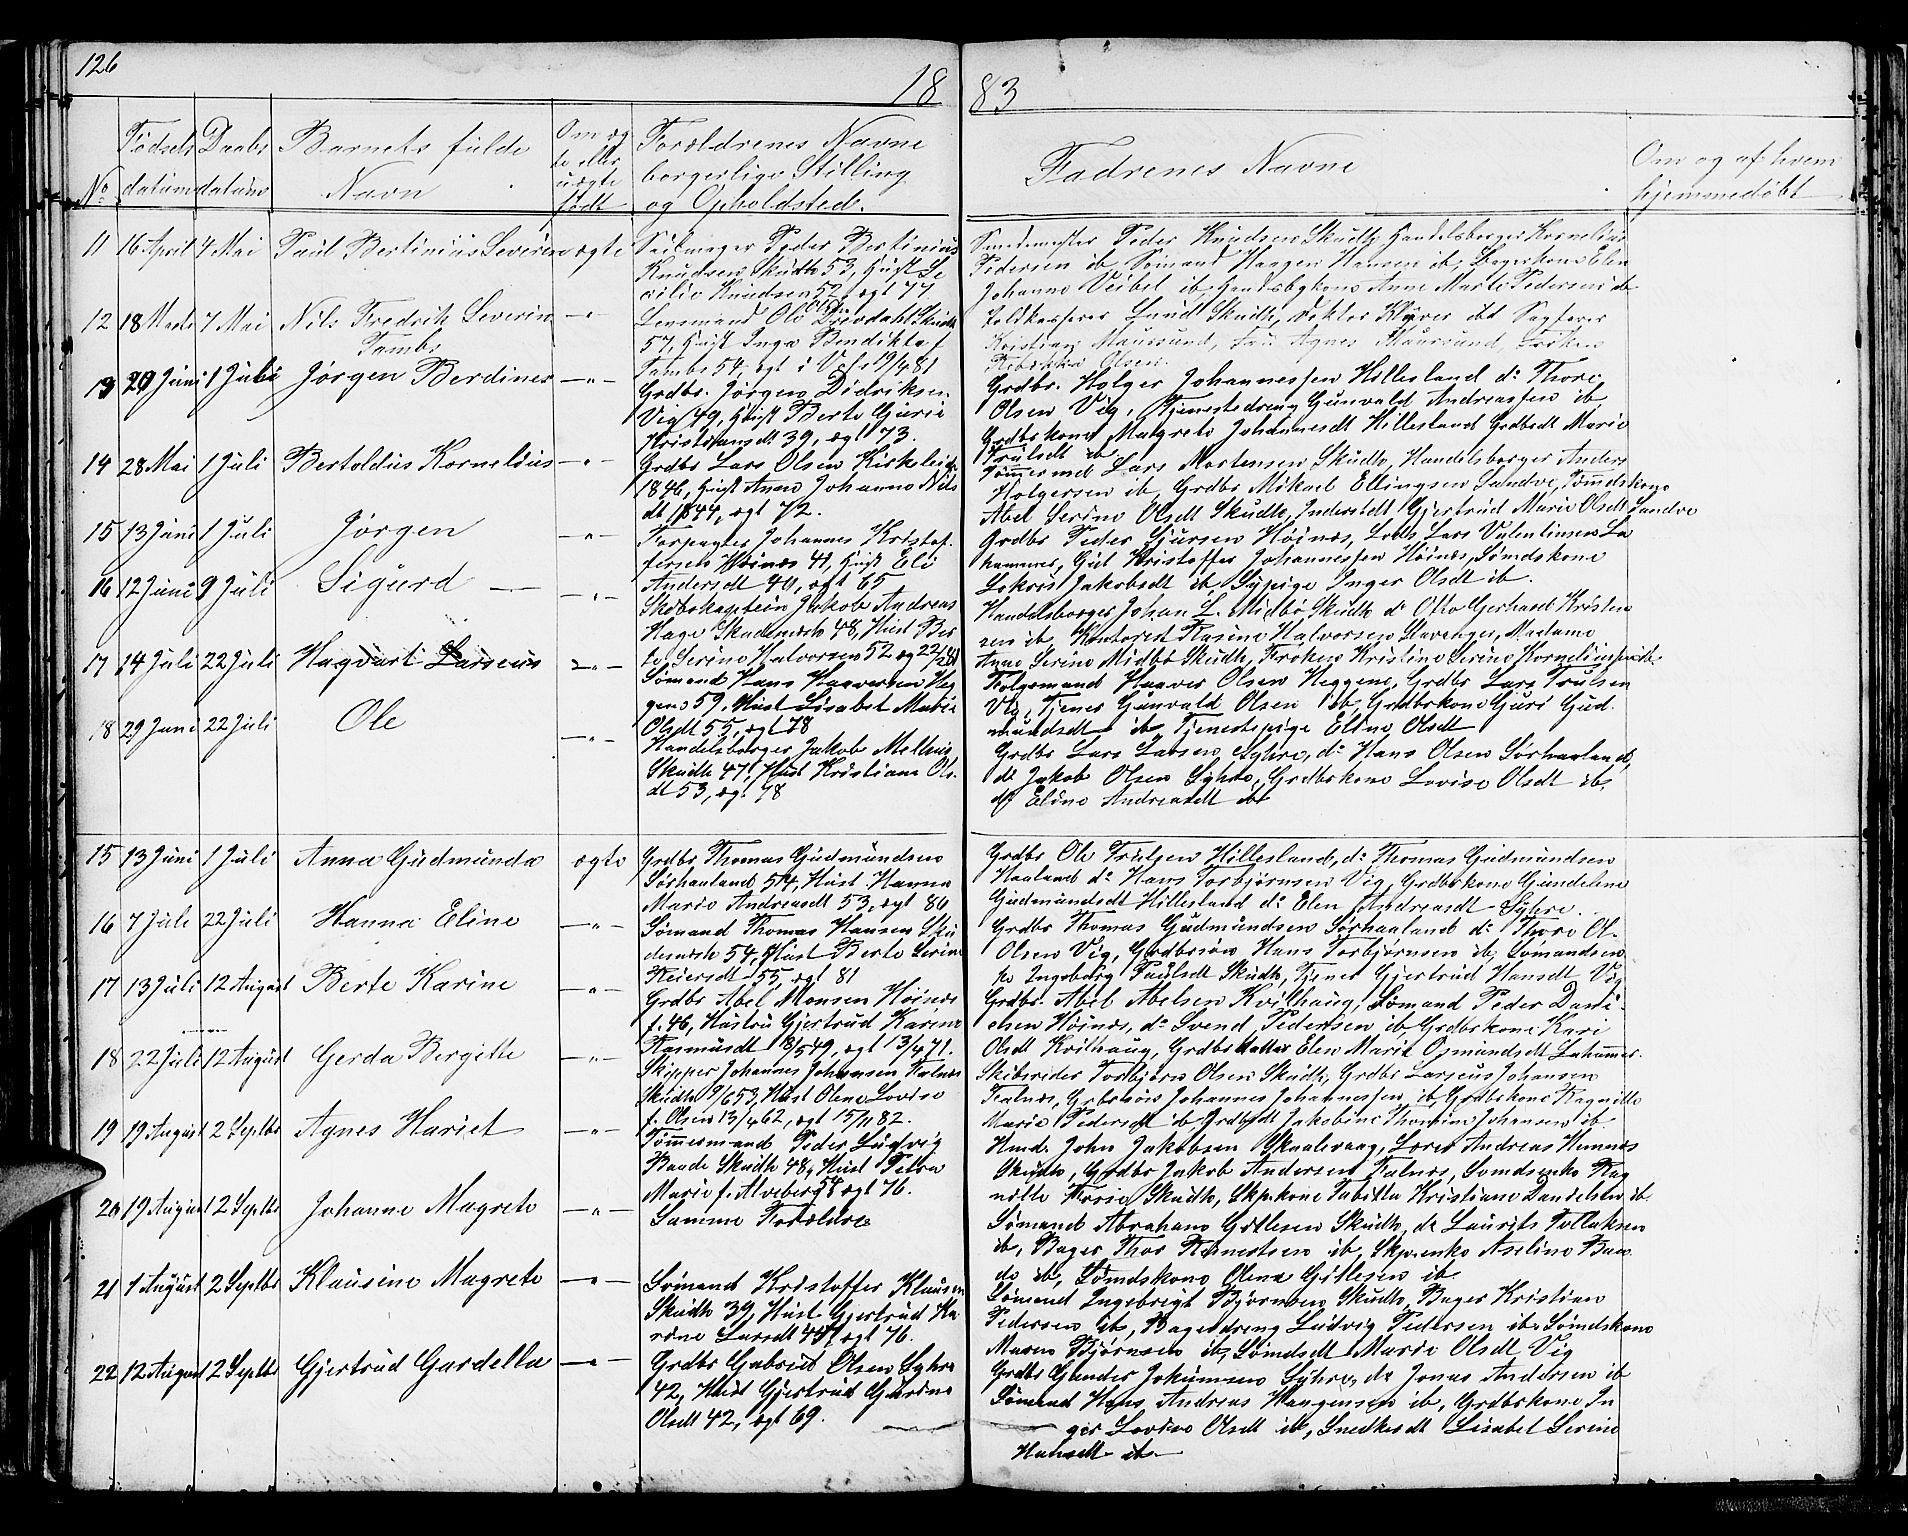 126
18 83
No
Fødsels datum
Daabs datum
Barnets fulde Navn
Om æg te eller uægte født
Forældrenes Navne borgerlige Stilling og Opholdsted.
Fadrenes Navne
Om og af hvem hjemmedøbt
11 16 April 7 Mai Paul Bertinius Severin ægte
Peder Bertinius
Knudsen Skudh 53, Hust Ce
cilie Knudsen 52, ægt 77
Peder Knudsen Skudh, Handelsborger Kornelius
Pedersen ib, Sømand Haagen Hansen ib, Bagerkone Elen
Johanne Veibel ib, Anne Marte Pedersen ib
12 18 Marts 7 Mai Nils Fredrik Severin Tambs —"—
Lensmand Ole Skudh
57, Hust Inga Bendikte f
Tambs 54, ægt i 19/4 81
Toldkasserer Lund Skudh, Doktor Kløver ibd Sagfører
Kristian Maursund, Fru Agnes Maursund, Frøken
Rebekka Olsen.
13 20 Juni 1 Juli Jørgen Berdines —"—
Grdbr. Jørgen Didriksen
Vig 49, Hust Berte Gurie
Kristiansdt 39, ægt 73.
Grdbr. Holger Johannessen Hillesland do Thore
Olsen Vig, Tjenestedreng Gunvald Andreassen ib,
Grdbrkone Magrete Johannesdt Hillesland Grdbrdt Marie
Trulsdt ib
14 28 Mai 1 Juli Bertoldus Kornelius —"—
Grdbr Lars Olsen Kirkeleit
1846, Hust Anne Johanne Nils
dt 1844, ægt 72.
Tømmermd Lars Mortensen Skudh, Handelsborger Anders
Holgersen ib, Grdbr Mikael Ellingsen Sandve, Tømdskone
Abel Serine Olsdt Skudh, Gjertrud Marie Olsdt Sandve
15 13 Juni 1 Juli Jørgen —"—
Forpagter Johannes Kristof
fersen Høines 41, Hust Eli
Andersdt 40, ægt 65
Grdbr Peder Sjursen Høines, Lods Lars Valentinsen La
hammer, Gut Kristoffer Johannessen Høines, Sømdskone
Jakobsdt ib, Sypige Inger Olsdt ib.
16 12 Juni 9 Juli Sigurd —"—
Skibskaptein Jakob Andreas
Hage Skudenesh 48, Hust Ber
te Serine Halvorsen 52 æg 22/2 81
Handelsborger Johan L. Midbø Skudh do Otto Gerhard Kristen
sen ib, Kontorist Rasine Halvorsen Stavanger, Madame
Anne Serine Midbø Skudh, Frøken Kristine Serine Korneliussen ib
17 14 Juli 22 Juli Hagvart Larseus —"—
Sømand Hans Haaversen Heg
gene 59, Hust Lisabet Marie
Olsdt 55, ægt 78
Folgemand Haaver Olsen Heggene, Grdbr Lars Trulsen
Vig, Tjener Gunvald Olsen ib, Grdbrkone Guri Gud
mundsdt ib Tjenestepige Eline Olsdt
18 29 Juni 22 Juli Ole —"—
Handelsborger Jakob
Skudh 47, Hust Kristiane Ols
dt 53, ægt 78
Grdbr Lars Larsen Syhre, do Hans Olsen Sørhaaland,
do Jakob Olsen Syhre, Grdbrkone Lovise Olsdt ib,
do Eline Andreasdt ib
15 13 Juni 1 Juli Anna Gudmunda ægte
Grdbr Thomas Gudmundsen
Sørhaaland 54, Hust Hanna
Marie Andreasdt 53, ægt 80
Grdbr Ole Trulsen Hillesland, do Thomas Gudmundsen
Haaland do Hans Torbjørnsen Vig, Grdbrkone Gundeline
Gudmundsdt Hillesland do Elen Andreasdt Syhre.
16 7 Juli 22 Juli Hanna Eline —"—
Sømand Thomas Hansen Sku
denesh 54, Hust Berte Serine
Reiersdt 55, ægt 81
Grdbr Thomas Gudmundsen Sørhaaland do Thore Ol
Olsen Vig, Grdbrsøn Hans Torbjørnsen ib, Sømandsen
ke Ingeborg Paulsdt Skudh, Tjener Gjertrud Hansdt Vig
17 13 Juli 12 August Berte Karine —"—
Grdbr Abel Monsen Høines
f. 46, Hustru Gjertrud Karine
Rasmusdt 8/5 49, ægt 13/4 71.
Grdbr. Abel Abelsen Kvilhaug, Sømand Peder Dani
elsen Høines, do Svend Pedersen ib, Grdbrkone Kari
Olsdt Kvilhaug, Grdbrdatter Elen Marie Osmundsdt Lahammer.
18 22 Juli 12 August Gerda Bergitte —"—
Skipper Johannes Johansen Falnes
Skudh 9/6 53, Hust Olene Lovise
f. Olsen 13/4 62, ægt 15/11 82.
Skibsreder Torbjørn Olsen Skudh, Grdbr Larseus Johansen
Falnes, Grdbrsøn Johannes Johannessen ib Grdbrkone Ragnilde
Marie Pedersdt ib Grdbrdt Jakobine Thomine Johansen ib.
19 19 August 2 Septbr Agnes Hariet —"—
Tømmermand Peder Ludvig
Baade Skudh 48, Hust Petra
Marie f. Alveberg 54 ægt 76.
Hmd. John Jakobsen Skaalevaag, Lærer Andreas Hemnes
Skudh, Grdbr Jakob Andersen Falnes, Sømdsenke Rag
nilde Skudh, Skpkone Tabitta Kristiane Danielsen ib
20 19 August 2 Septbr Johanne Magrete —"—
Samme Forældre
Sømand Abraham Gitlesen Skudh do Laurits Tollaksen
ib, Bager Thor ib, Skprenke Aseline Baa
de ib, Sømdskone Olena Gitlesen ib
21 1 August 2 Septbr Klausine Magrete —"—
Sømand Kristoffer Klausen
Skudh 39, Hust Gjertrud Ka
rine Larsdt 45 ægt 76.
Sømand Ingebrigt Bjørnsen Skudh, Bager Kristian
Pedersen ib, Bagerdreng Ludvig Pedersen ib Sømdskone
Maren Bjørnsen ib, Sømdsdt Marie Olsdt Vig
22 12 August 2 Septbr Gjertrud Gardella —"—
Grdbr Gabriel Olsen Syhre
42, Hust Gjertrud Gurine
Olsdt 42, ægt 69.
Grdbr Jokumsen Syhre, do Jonas Andersen ib
Sømand Hans Andreas Haagensen ib, Grdbrkone In
ger Lovise Olsdt ib, Snedkerdt Lisabet Serine
Hansdt ib